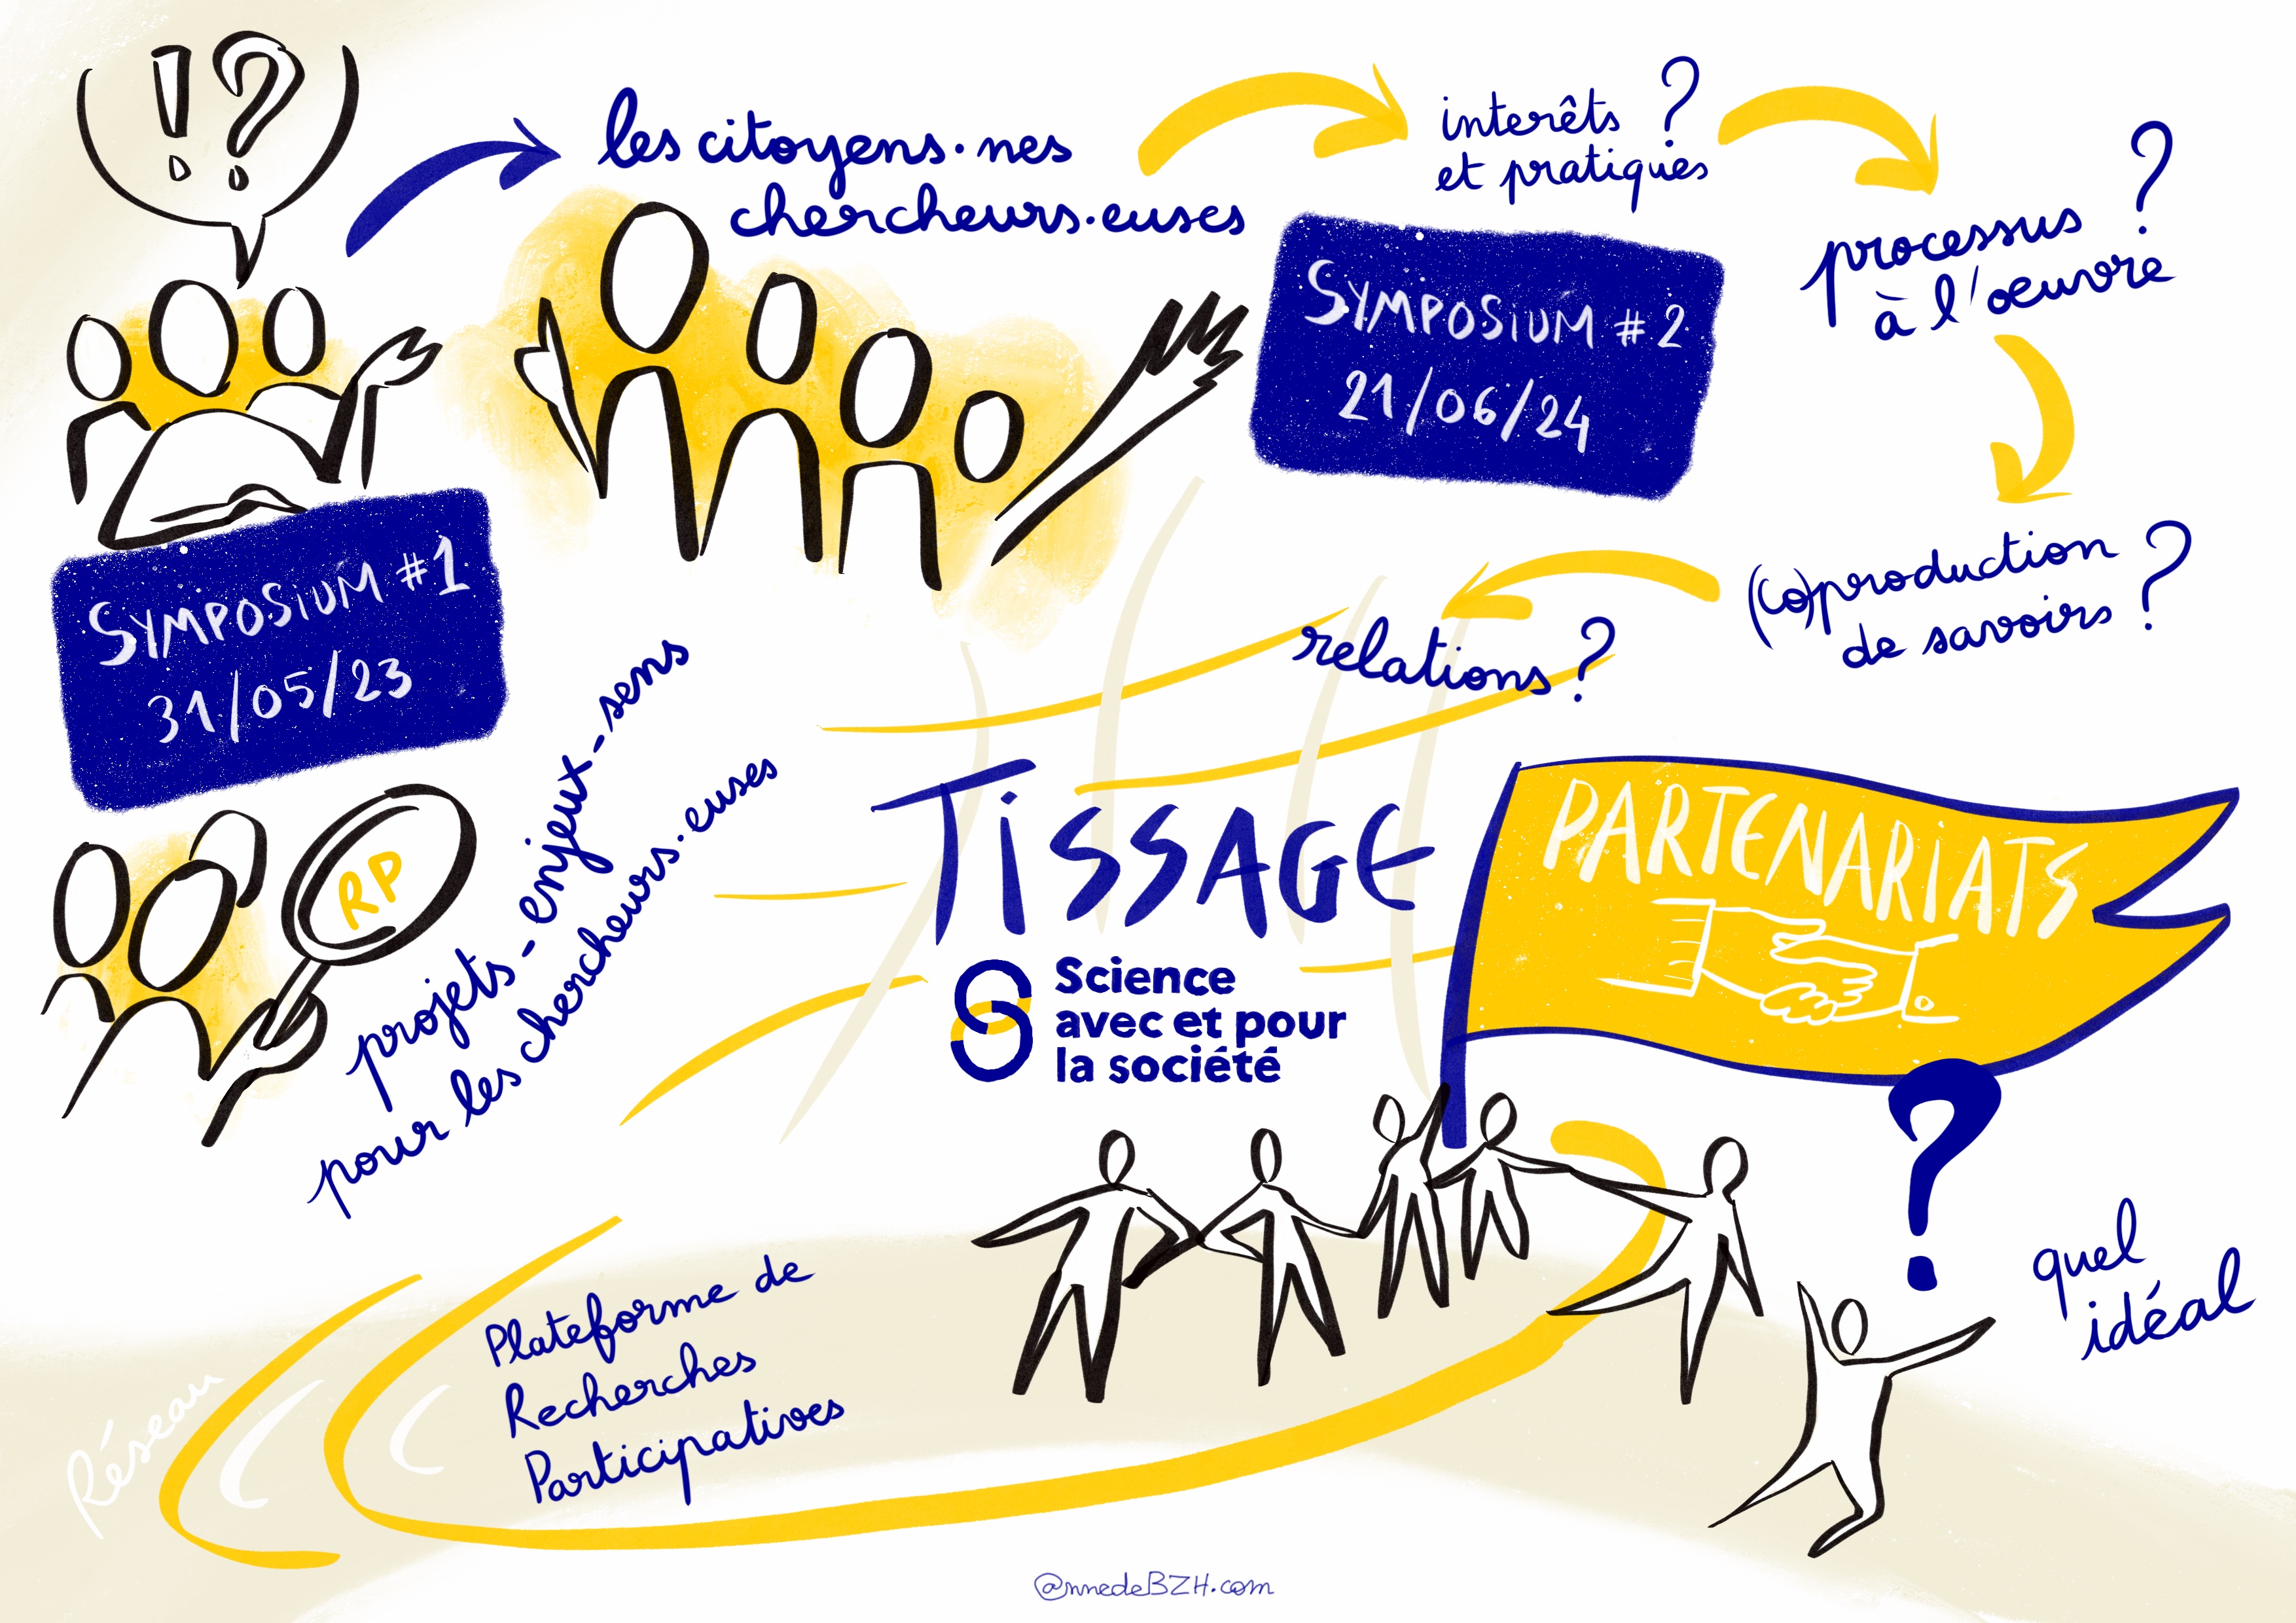 !?
les citoyens·nes
chercheurs·euses
interêts ?
et pratiques
processus ?
à l'œuvre
SYMPOSIUM #2
21/06/24
(co)production
de savoirs ?
relations ?
SYMPOSIUM #1
31/05/23
RP
projets - enjeux - sens
pour les chercheurs·euses
TISSAGE
Science
avec et pour
la société
PARTENARIATS
?
quel
idéal
Plateforme de
Recherches
Participatives
Réseau
@nnedeBZH.com